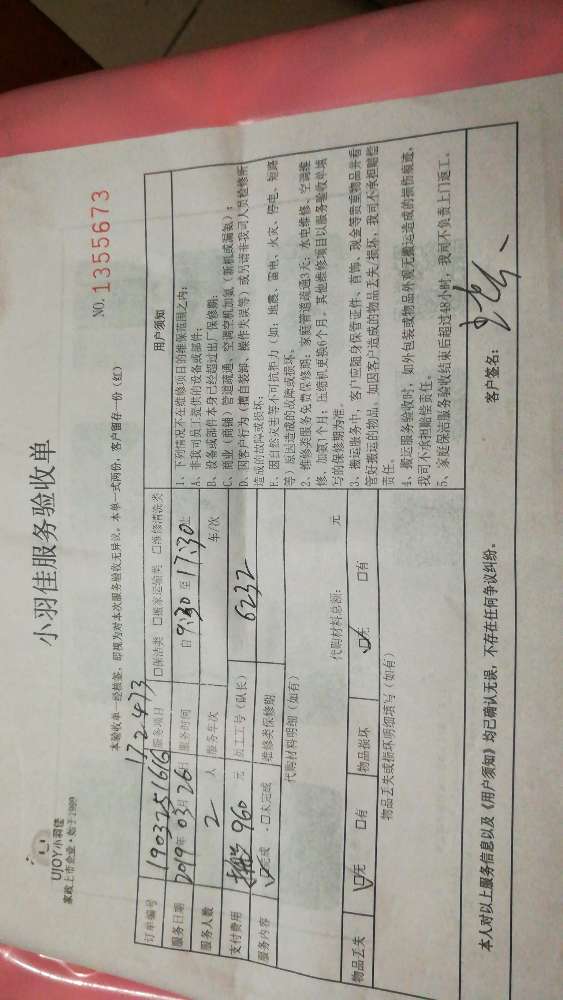 UJOY小羽佳
家政上市企业·始于1989
小羽佳服务验收单
NO.1355673
本验收单一经核签,即视为对本次服务验收无异议。本单一式两份,客户留存一份(红)
订单编号
服务项目 口保洁类 口搬家运输类 口维修清洗类
服务日期 2019年03月26日 服务时间 自9:30至17:30止
服务人数 2 人 服务车次 车/次
支付费用 960 元 员工工号(队长) 6232
服务内容 口完成 口未完成 维修类保修期
代购材料明细(如有)
代购材料总额: 元
物品丢失 口无 口有 物品损坏 口无 口有
物品丢失或损坏明细填写(如有)
用户须知
1、下列情况不在维修项目的维保范围之内:
A、非我司员工提供的设备或部件;
B、设备或部件本身已经超过出厂保修期;
C、商业(商铺)管道疏通、空调空机加氨(新机或漏氨);
D、因客户行为(擅自装卸、操作失误等)或另请非我司人员检修所
造成的故障或损坏;
E、因自然灾害等不可抗拒力(如:地震、雷电、火灾、停电、短路
等)原因造成的故障或损坏。
2、维修类服务免费保修期:家庭管道疏通3天;水电维修、空调维
修、加氨1个月;压缩机更换6个月。其他维修项目以服务验收单填
写的保修期为准。
3、搬运服务中,客户应随身保管证件、首饰、现金等贵重物品并看
管好搬运的物品,如因客户造成的物品丢失损坏,我司不承担赔偿
责任。
4、搬运服务验收时,如外包装或物品外观无搬运造成的损伤痕迹,
我司不承担赔偿责任。
5、家庭保洁服务验收结束后超过48小时,我司不负责上门返工。
本人对以上服务信息以及《用户须知》均已确认无误,不存在任何争议纠纷。
客户签名: